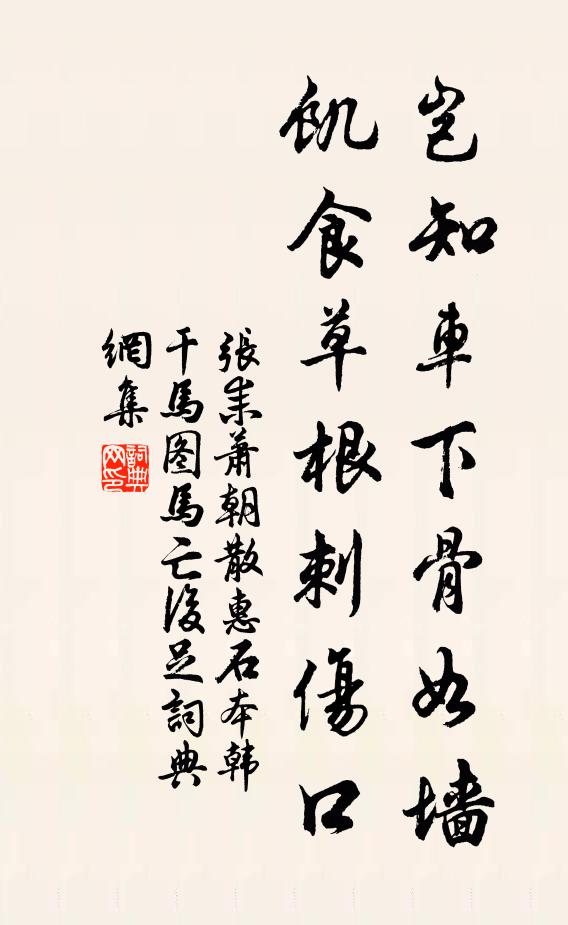 豈知車下骨如墻
飢食草根刺傷口
張耒蕭朝散惠石本韩
干馬图馬亡後足詞典
網集
詞典
网印